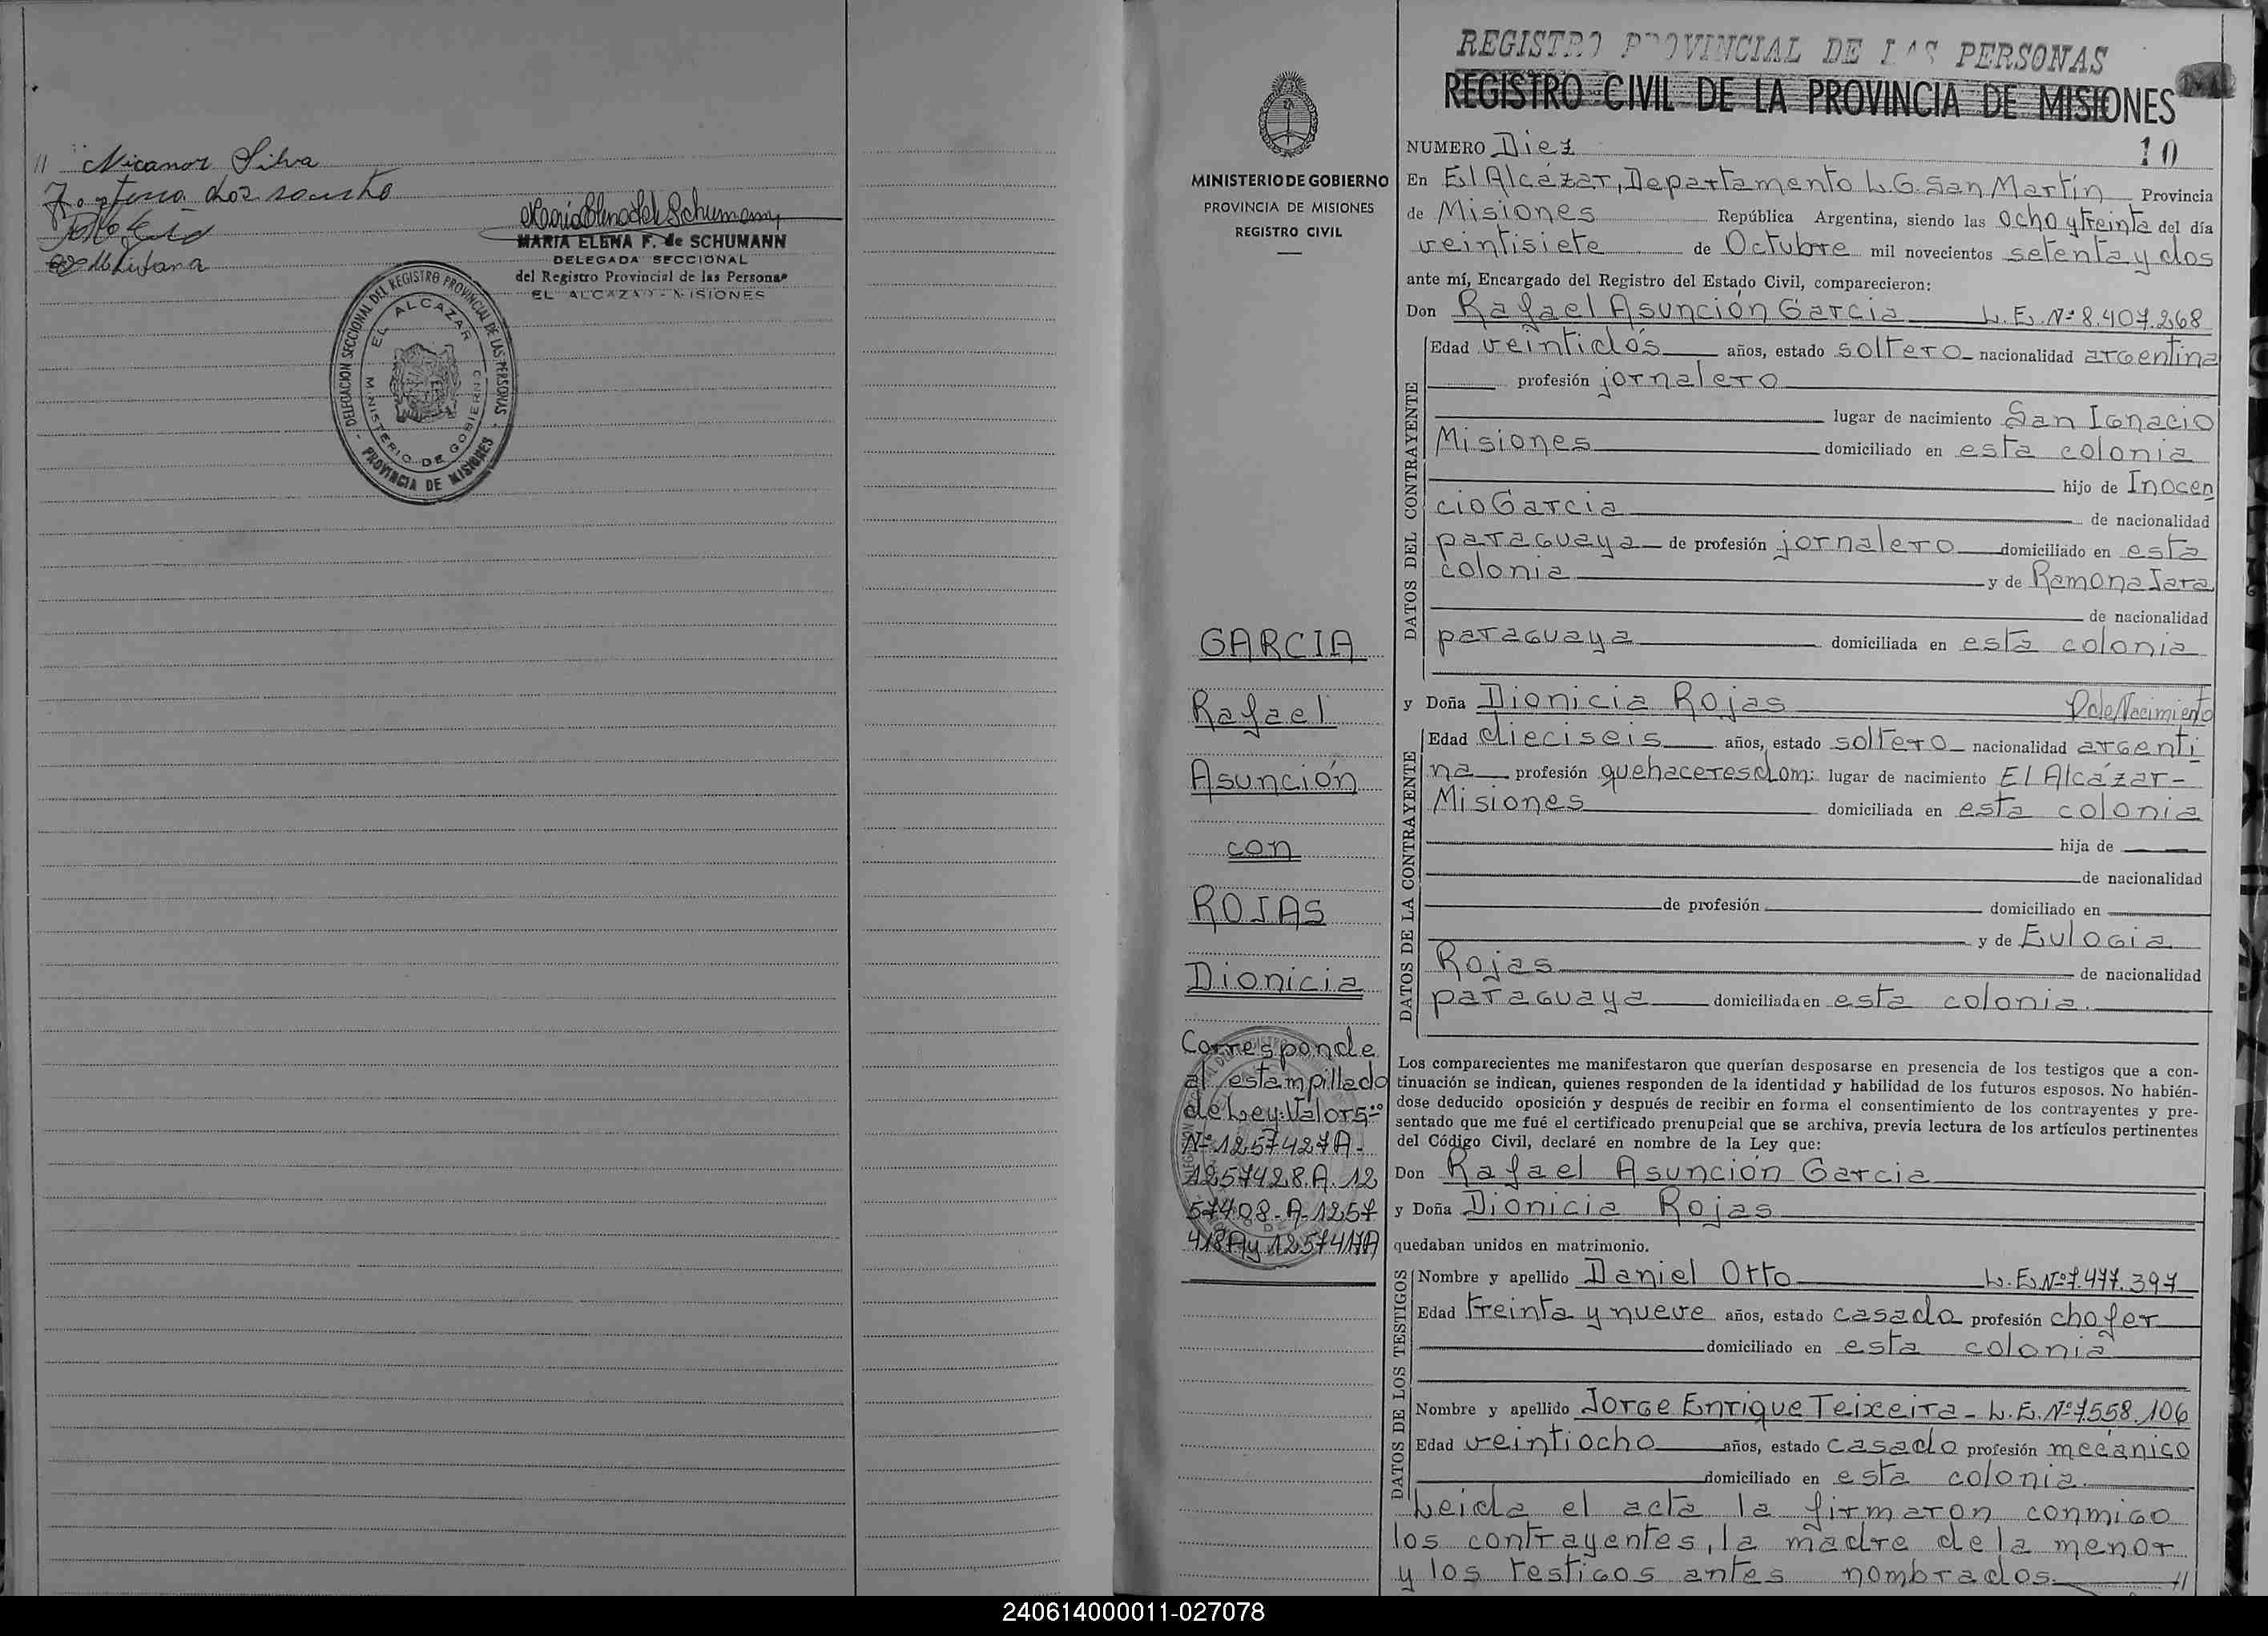 // Nicanor Silva
MARIA ELENA F. de SCHUMANN
DELEGADA SECCIONAL
del Registro Provincial de las Personas
EL ALCAZAR - MISIONES
DELEGACION SECCIONAL DEL REGISTRO PROVINCIAL DE LAS PERSONAS
EL ALCAZAR
MINISTERIO DE GOBIERNO
- PROVINCIA DE MISIONES -
REGISTRO PROVINCIAL DE LAS PERSONAS
REGISTRO CIVIL DE LA PROVINCIA DE MISIONES
MINISTERIO DE GOBIERNO
PROVINCIA DE MISIONES
REGISTRO CIVIL
GARCIA
Rafael
Asunción
con
ROJAS
Dionicia
Corresponde
al estampillado
de Ley: Valor 5=
Nº 1257427A-
1257428.A. 12
57408-A-1257
418A y 1257417A
NUMERO Diez 10
En El Alcázar, Departamento L.G. San Martín Provincia
de Misiones República Argentina, siendo las ocho y treinta del día
veintisiete de Octubre mil novecientos setenta y dos
ante mí, Encargado del Registro del Estado Civil, comparecieron:
Don Rafael Asunción Garcia L.E. Nº 8.407.268
DATOS DEL CONTRAYENTE
Edad veintidós años, estado soltero nacionalidad argentina
profesión jornalero
lugar de nacimiento San Ignacio
Misiones domiciliado en esta colonia
hijo de Inocen
cio Garcia de nacionalidad
paraguaya de profesión jornalero domiciliado en esta
colonia y de Ramona Jara
de nacionalidad
paraguaya domiciliada en esta colonia
y Doña Dionicia Rojas P de Nacimiento
DATOS DE LA CONTRAYENTE
Edad dieciseis años, estado soltero nacionalidad argenti
na profesión quehaceres dom: lugar de nacimiento El Alcázar-
Misiones domiciliada en esta colonia
hija de
de nacionalidad
de profesión domiciliado en
y de Eulogia
Rojas de nacionalidad
paraguaya domiciliada en esta colonia.
Los comparecientes me manifestaron que querían desposarse en presencia de los testigos que a con-
tinuación se indican, quienes responden de la identidad y habilidad de los futuros esposos. No habién-
dose deducido oposición y después de recibir en forma el consentimiento de los contrayentes y pre-
sentado que me fué el certificado prenupcial que se archiva, previa lectura de los artículos pertinentes
del Código Civil, declaré en nombre de la Ley que:
Don Rafael Asunción Garcia
y Doña Dionicia Rojas
quedaban unidos en matrimonio.
DATOS DE LOS TESTIGOS
Nombre y apellido Daniel Otto L.E. Nº 7.477.397
Edad treinta y nueve años, estado casado profesión chofer
domiciliado en esta colonia
Nombre y apellido Jorge Enrique Teixeira - L.E. Nº 7.558.106
Edad veintiocho años, estado casado profesión mecánico
domiciliado en esta colonia.
Leida el acta la firmaron conmigo
los contrayentes, la madre de la menor
y los testigos antes nombrados. //
240614000011-027078